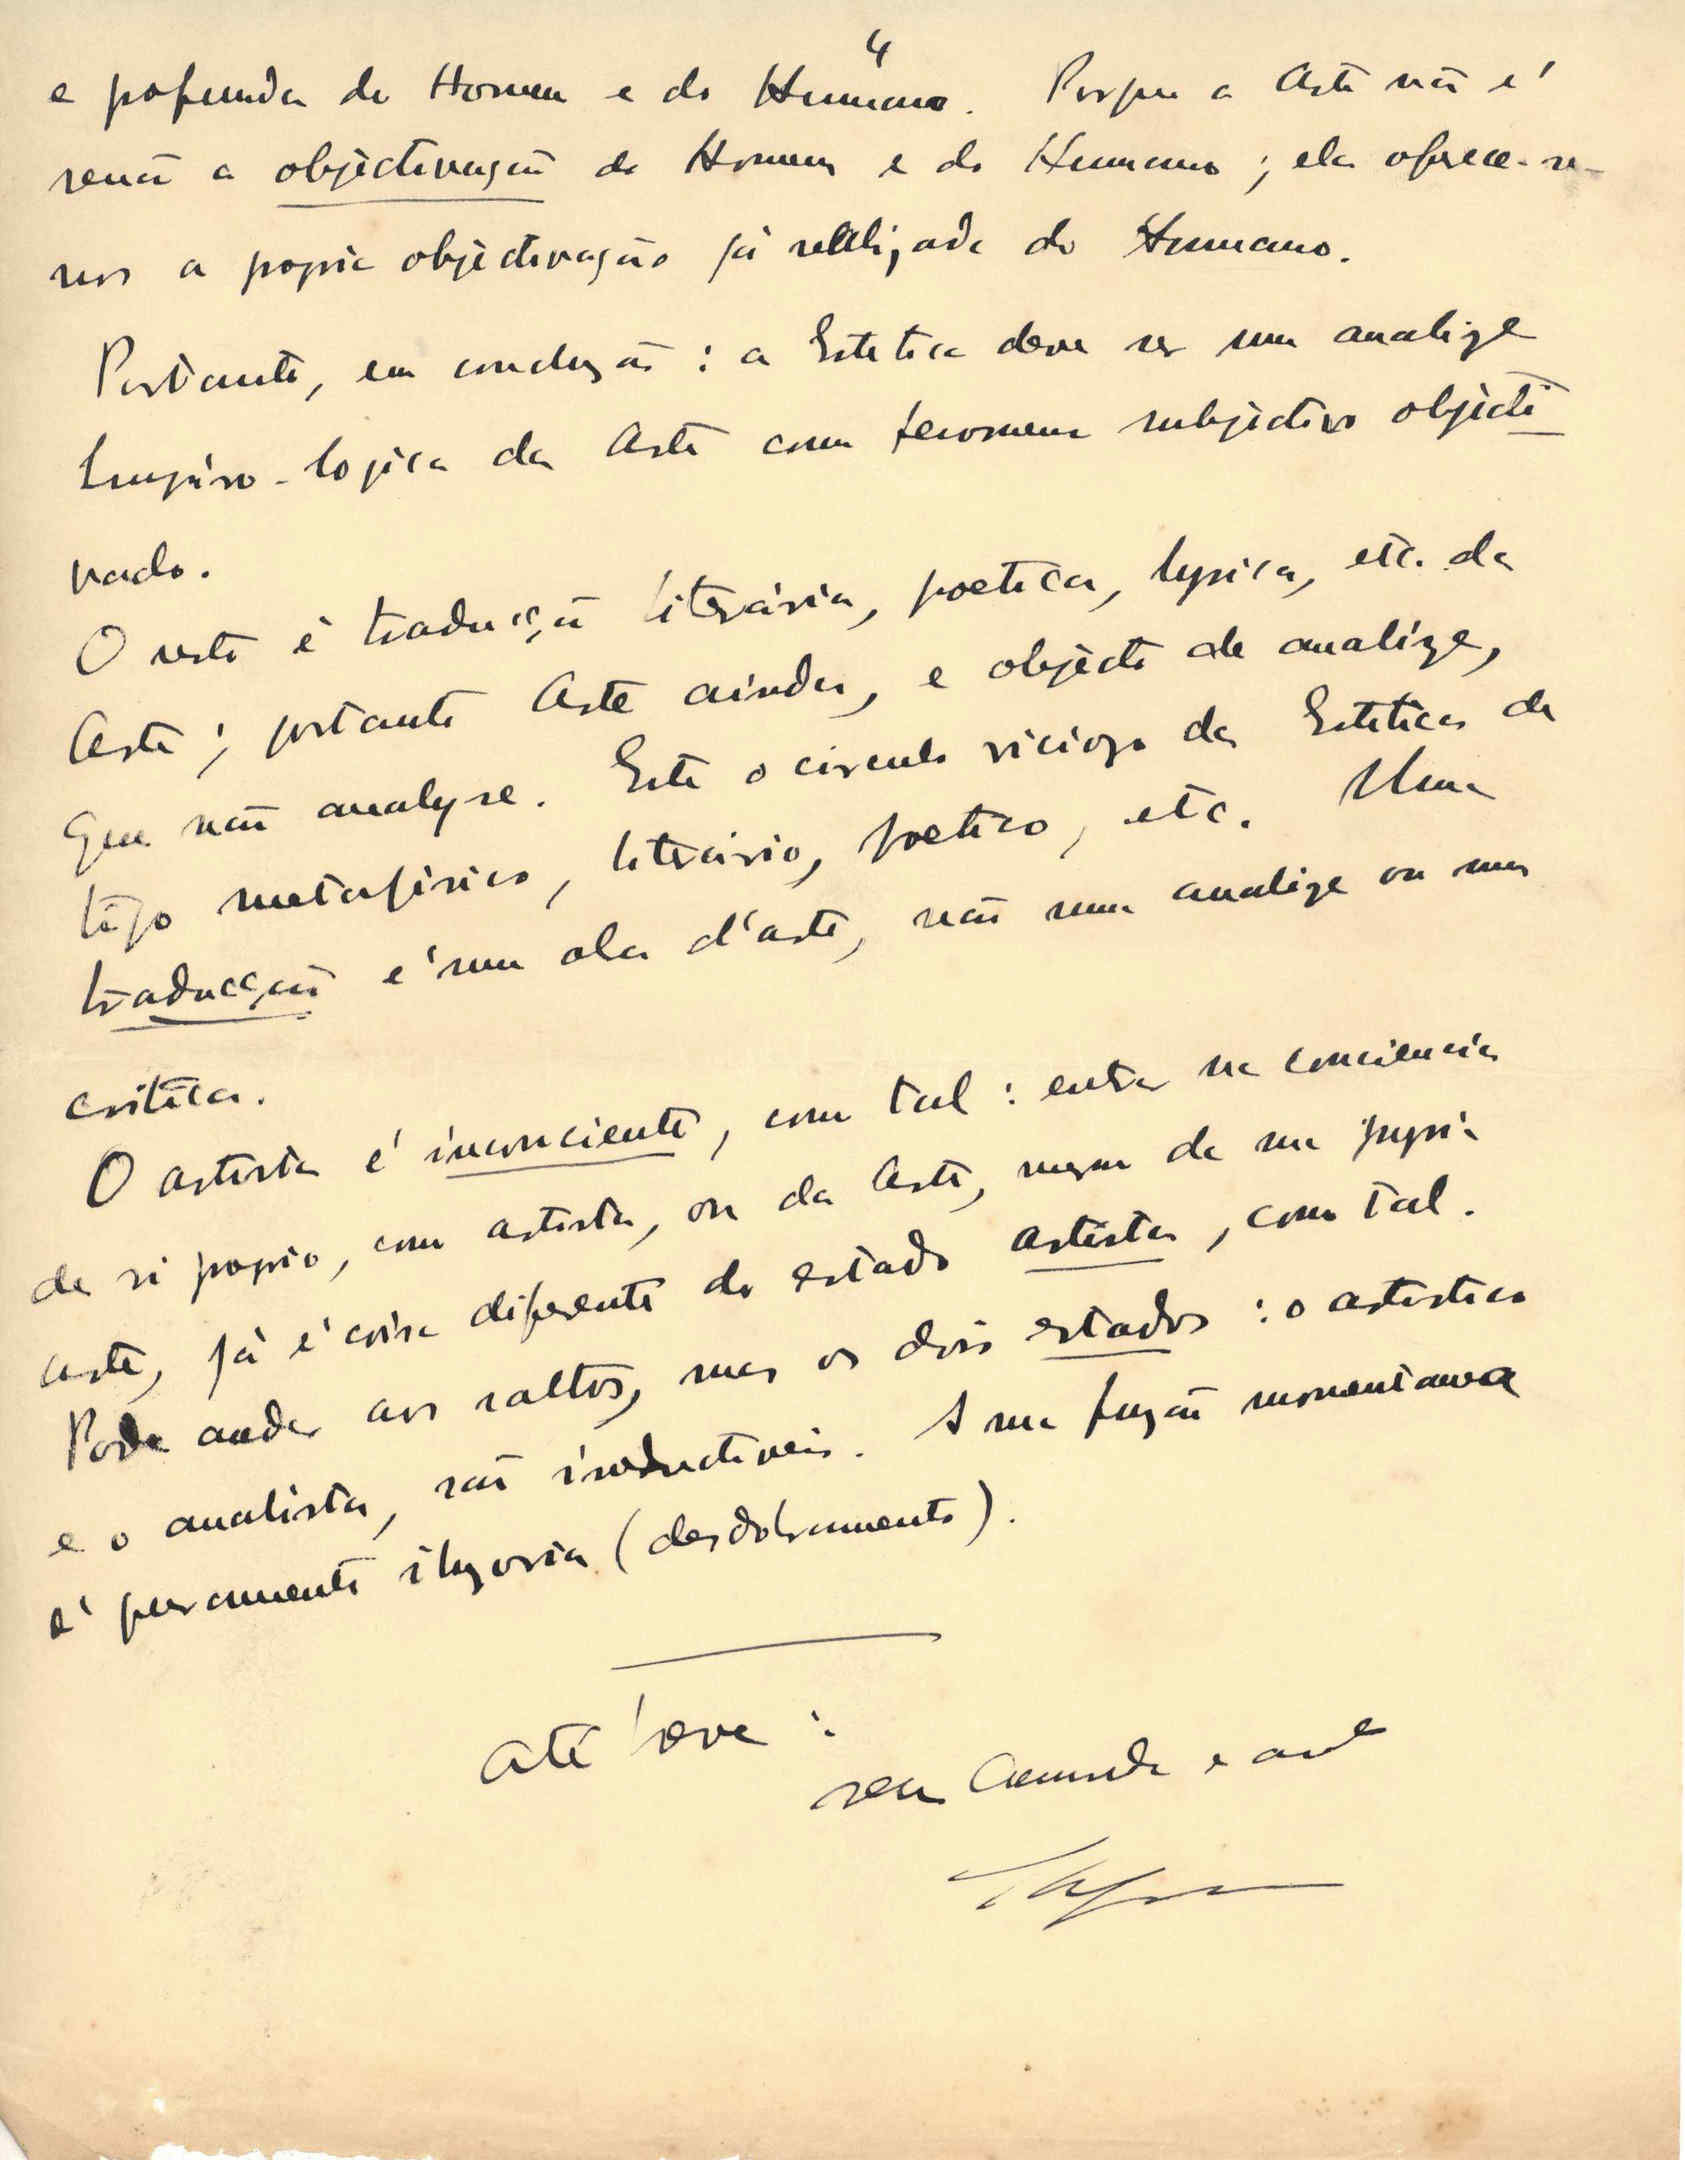 4
e profunda do Homem e do Humano. Porque a Arte não é
senão a objèctivação do Homem e do Humano; ela oferece-se-
nos a propria objèctivação já realizada do Humano.
Portanto, em concluzão: a Estetica deve ser uma analize
Empirio-logica da Arte como fenomeno subjèctivo objècti
vado.
O resto é traducção literária, poetica, lyrica, etc. da
Arte; portanto Arte ainda, e objècto de analize,
que não analyse. Este o circulo viciozo da Estetica de
tipo metafisico, literário, poetico, etc. Uma
traducção é uma obra d'arte, não uma analize ou uma
critica.
O artista é inconciente, como tal: entrar na conciencia
de si proprio, como artista, ou da Arte, mesmo da sua propria
arte, já é coisa diferente do estado artista, como tal.
Pode andar aos saltos, mas os dois estados: o artistico
e o analista, são irreductiveis. A sua fuzão momentanea
é puramente iluzoria (desdobramento).
Até breve:
seu Camarada e